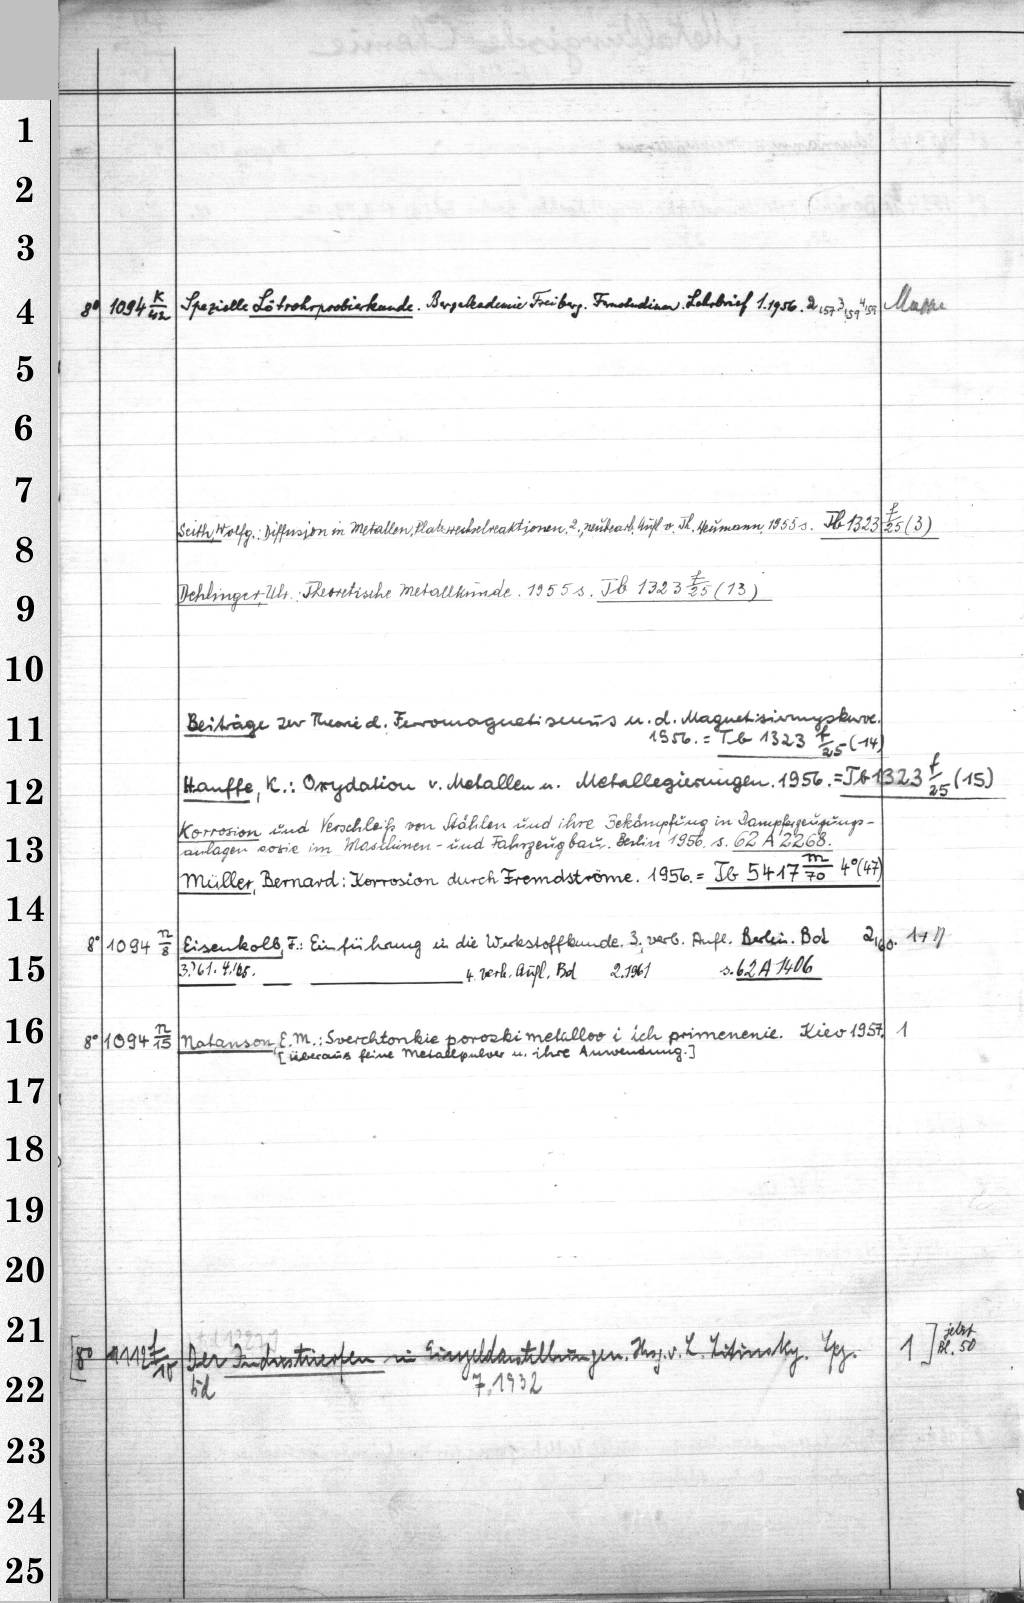 1
2
3
4 8° 1094 K/42 Spezielle Lötrohrprobierkunde. Bergakademie Freiberg. Fernstudium. Lehrbrief 1.1956. 2,57 3,59 4,59
5
6
7
8 Seith, Wolfg.: Diffusion in Metallen, Platzwechselreaktionen. 2., neubearb. Aufl v. Th. Heumann. 1955 s. Tb 1323 f/25 (3)
9 Dehlinger, Ulr.: Theoretische Metallkunde. 1955 s. Tb 1323 f/25 (13)
10
11 Beiträge zur Theorie d. Ferromagnetismus u. d. Magnetisierungskurve.
1956. = Tb 1323 f/25 (14)
12 Hauffe, K.: Oxydation v. Metallen u. Metallegierungen. 1956. = Tb 1323 f/25 (15)
Korrosion und Verschleiß von Stählen und ihre Bekämpfung in Dampferzeugungs-
13 anlagen sowie im Maschinen- und Fahrzeugbau. Berlin 1956. s. 62 A 2268.
Müller, Bernard: Korrosion durch Fremdströme. 1956. = Tb 5417 m/70 4° (47)
14
8° 1094 n/8 Eisenkolb, F.: Einführung in die Werkstoffkunde. 3. verb. Aufl. Berlin. Bd 2,60. 1+1
15 4. verb. Aufl. Bd 2.1961 s. 62 A 1406
16 8° 1094 n/15 Natanson, E. M.: Sverchtonkie poroski metallov i ich primenenie. Kiev 1957. 1
[überaus feine Metallpulver u. ihre Anwendung.]
17
18
19
20
21 [8° 1112 f/10 Der Industrieofen in Einzeldarstellungen. Hsg. v. L. Litinsky. Lpz. 1 ] jetzt Bl. 50
22 Bd 7, 1932
23
24
25